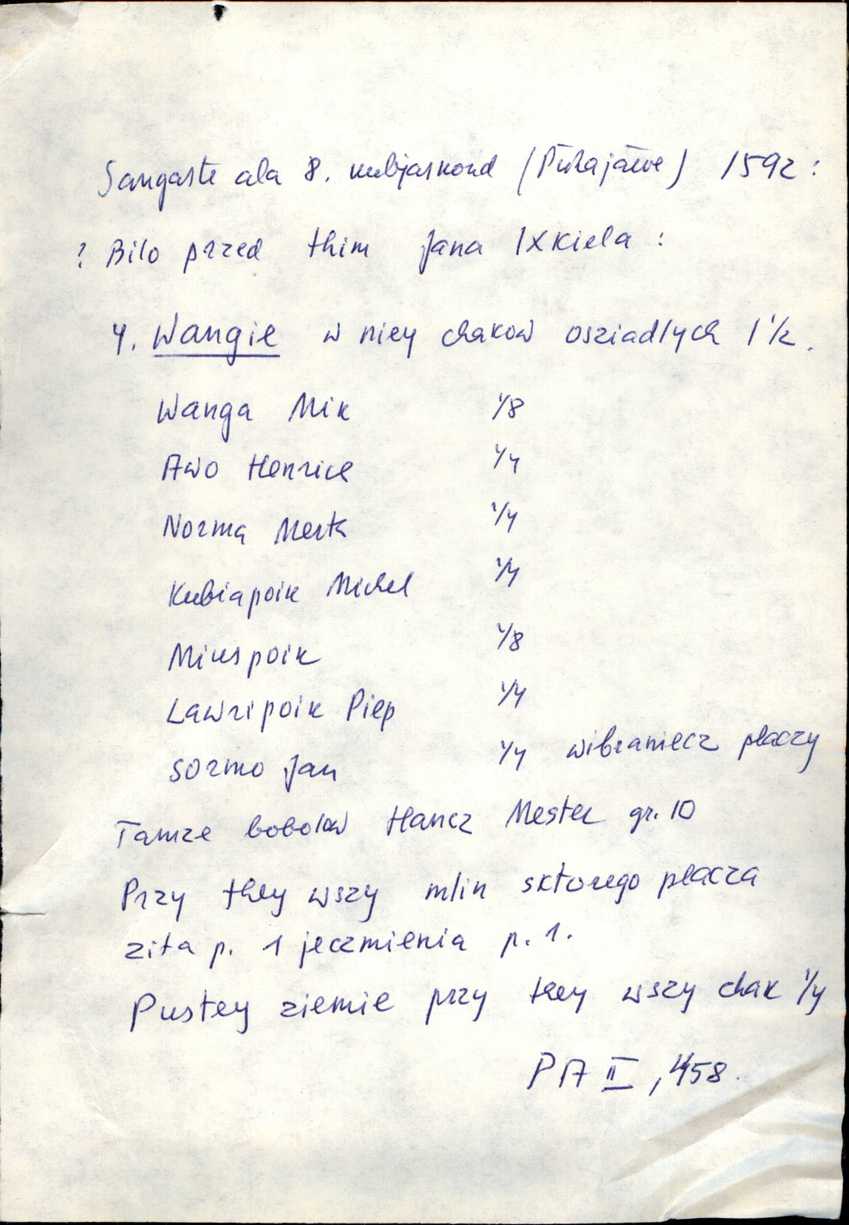 Sangaste ala 8. kubjaskond (Pühajärve) 1592:
? Bilo przed thim Jana Ixkiela:
4. Wangie w niey chakow osziadlych 1 1/2.
Wanga Mik 1/8
Awo Henrick 1/4
Norma Mertk 1/4
Kubiapoik Michel 1/4
Miuspoik 1/8
Lawripoik Piep 1/4
Sormo Jan 1/4 wibraniecz płaczy
Tamze bobolow Hancz Mestek gr. 10
Przy they wszy mlin sktorego płacza
zita p. 1 jeczmienia p. 1.
Pustey ziemie przy they wszy chak 1/4
PA II, 458.